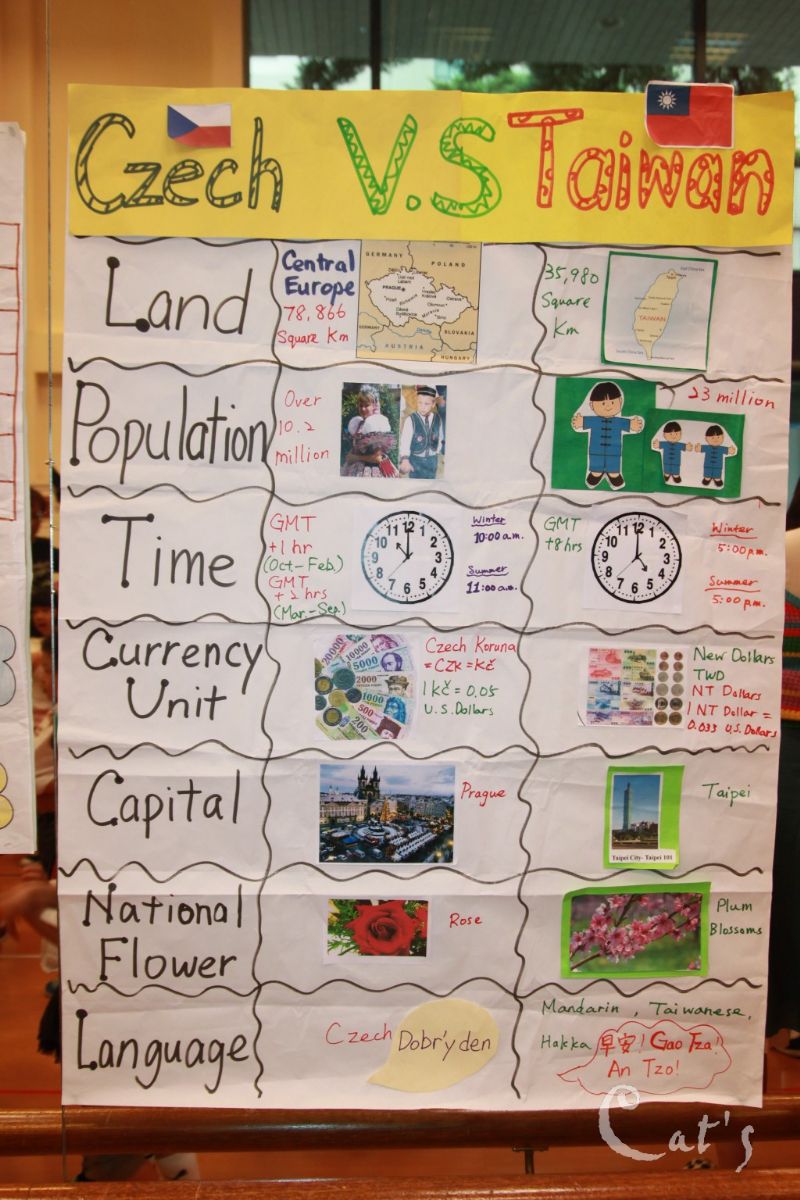 Czech V.S Taiwan
Land
Central
Europe
78,866
Square Km
GERMANY
POLAND
PRAGUE
SLOVAKIA
AUSTRIA
HUNGARY
35,980
Square
Km
TAIWAN
Population
Over
10.2
million
23 million
Time
GMT
+1 hr
(Oct-Feb.)
GMT
+2 hrs
(Mar.-Sep.)
12 1 2 3 4 5 6 7 8 9 10 11
Winter
10:00 a.m.
Summer
11:00 a.m.
GMT
+8 hrs
12 1 2 3 4 5 6 7 8 9 10 11
Winter
5:00 p.m.
Summer
5:00 p.m.
Currency
Unit
20000
10000
5000
2000
1000
500
200
Czech Koruna
= CZK = Kč
1 Kč = 0.05
U.S. Dollars
New Dollars
TWD
NT Dollars
1 NT Dollar =
0.033 U.S. Dollars
Capital
Prague
Taipei City- Taipei 101
Taipei
National
Flower
Rose
Plum
Blossoms
Language
Czech
Dobr'y den
Mandarin, Taiwanese,
Hakka
早安! Gao Tza!
An Tzo!
Cat's